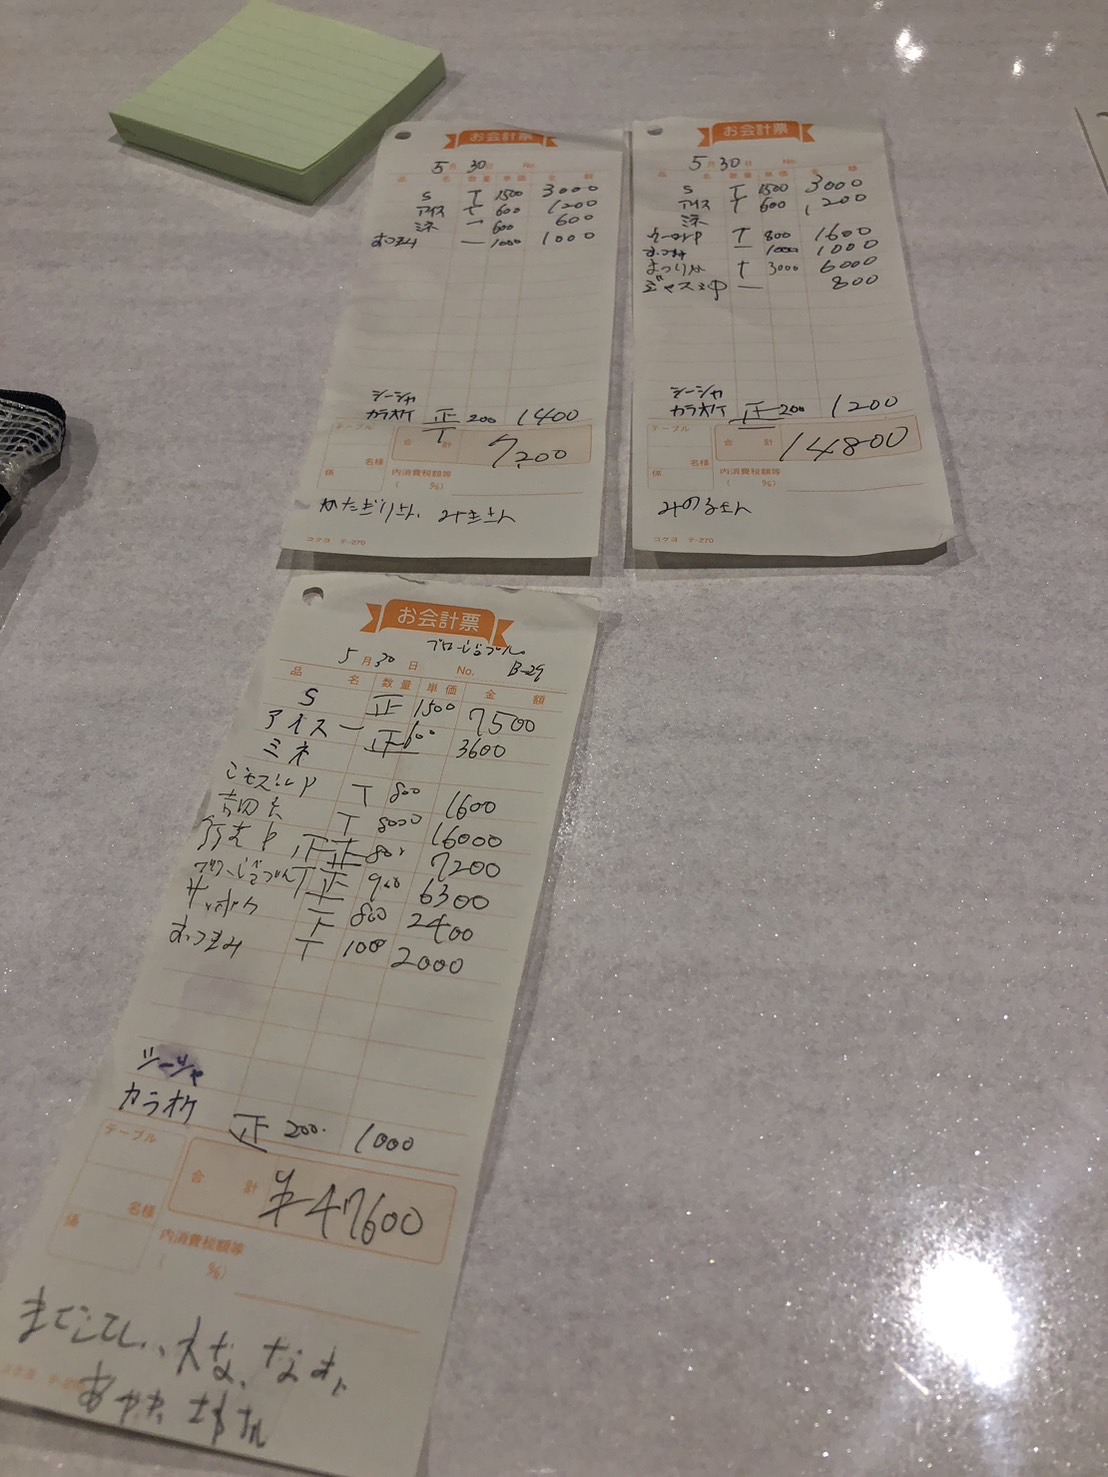 お会計票
5月30日 No.
品名 数量 単価 金額
S T 1500 3000
アイス T 600 1200
ミネ 一 600 600
おつまみ 一 1000 1000
シーシャ
カラオケ 正T 200 1400
テーブル 合計 7200
名様
係 内消費税額等
( %)
かたぎりさん、みきさん
コクヨ テ-270
お会計票
5月30日 No.
S T 1500 3000
アイス T 600 1200
ミネ
T 800 1600
おつまみ 一 1000 1000
T 3000 6000
一 800
シーシャ
カラオケ 正一 200 1200
テーブル 合計 14800
名様
係 内消費税額等
( %)
みのるさん
コクヨ テ-270
お会計票
5月30日 No. B-29
品名 数量 単価 金額
S 正 1500 7500
アイス 一 正 600 3600
ミネ
T 800 1600
T 8000 16000
正正 800 7200
正T 900 6300
下 800 2400
おつまみ T 1000 2000
シーシャ
カラオケ 正 200 1000
テーブル 合計 ¥47600
名様
係 内消費税額等
( %)
コクヨ テ-270